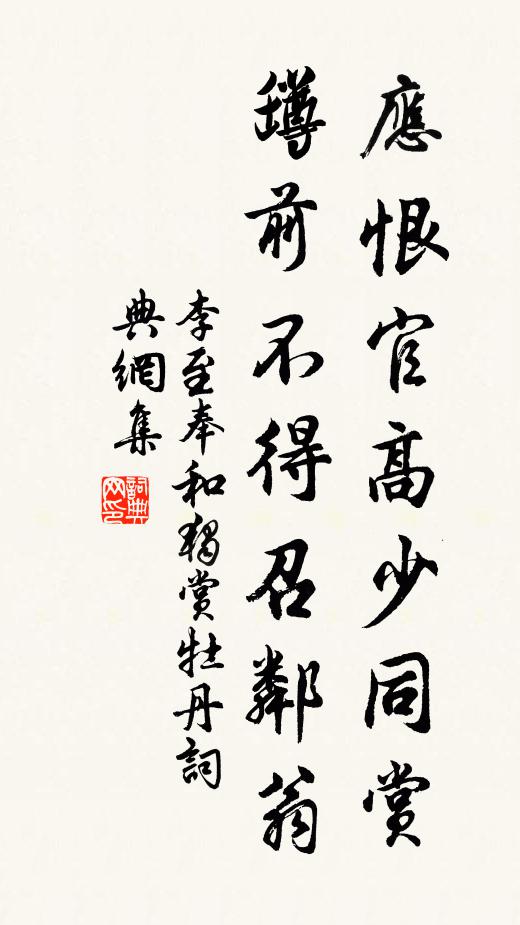 應恨官高少同賞
罇前不得召鄰翁
李至奉和獨賞牡丹詞
典網集
詞典网印